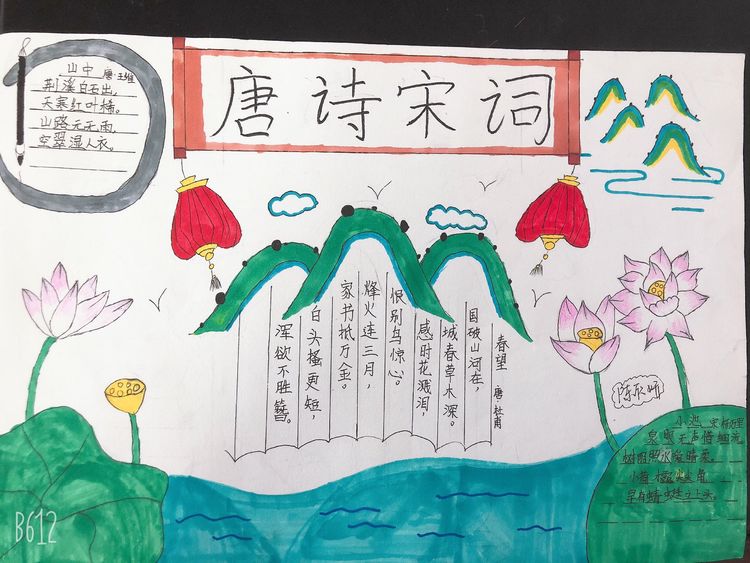 唐诗宋词
山中 唐·王维
荆溪白石出，
天寒红叶稀。
山路元无雨，
空翠湿人衣。
春望 唐 杜甫
国破山河在，
城春草木深。
感时花溅泪，
恨别鸟惊心。
烽火连三月，
家书抵万金。
白头搔更短，
浑欲不胜簪。
小池 宋 杨万里
泉眼无声惜细流
树阴照水爱晴柔。
小荷 尖角
早有蜻蜓立上头。
B612